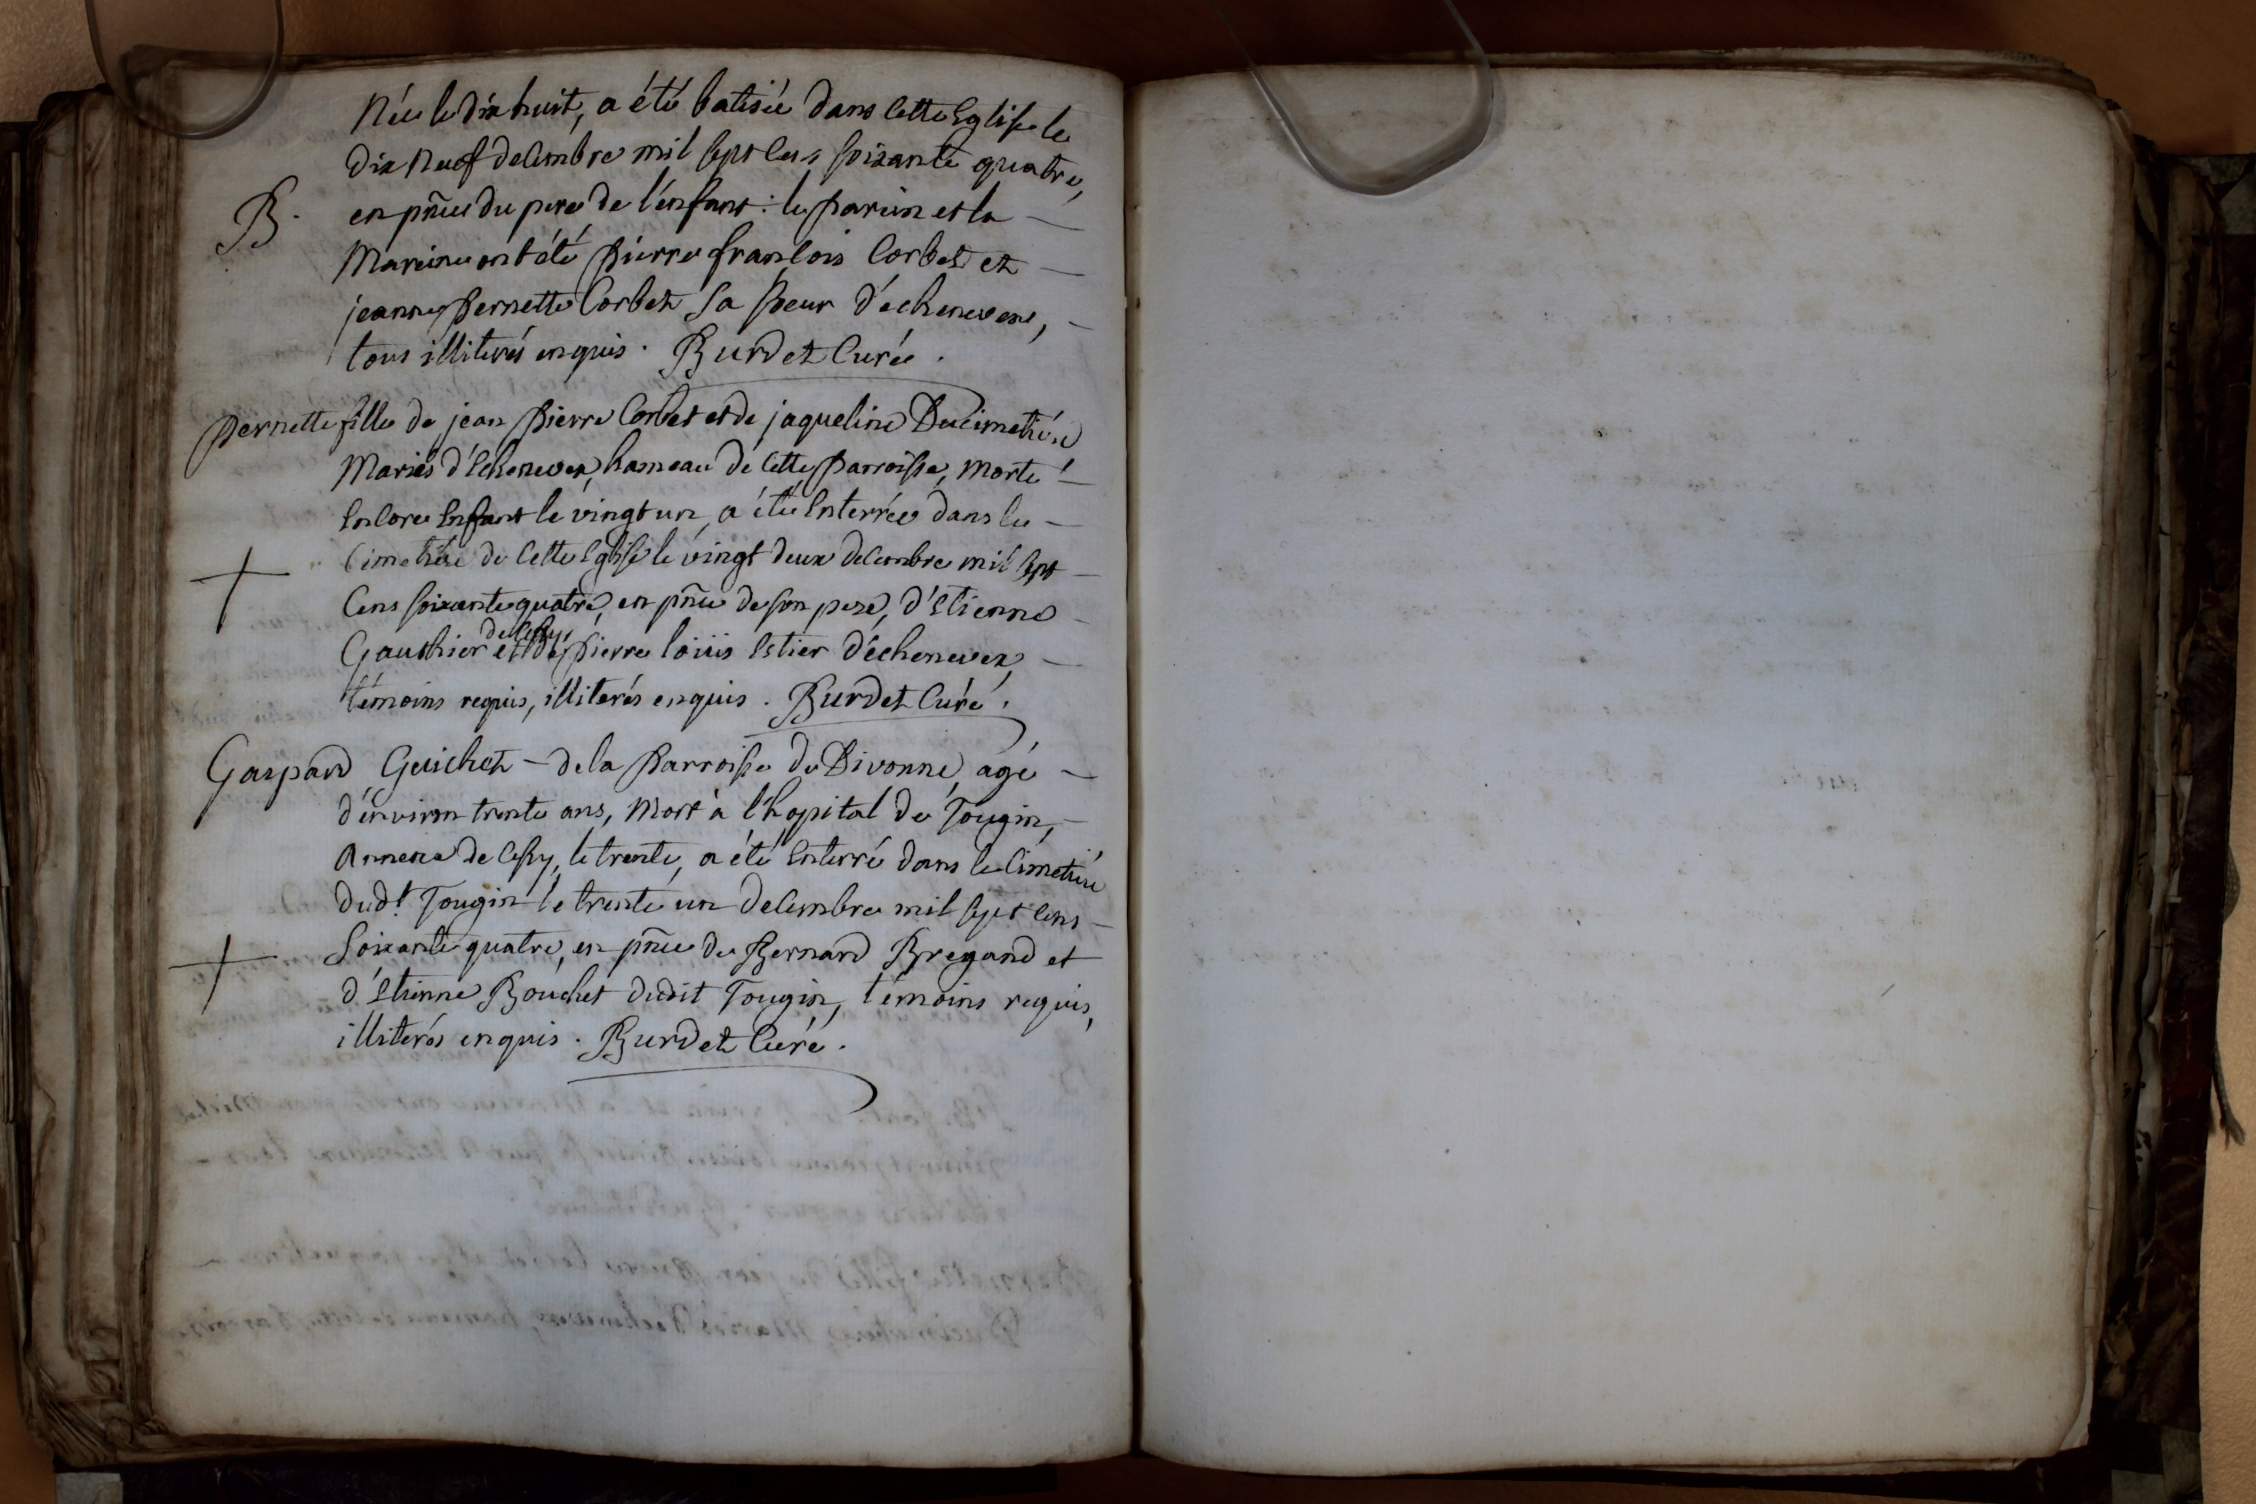 Née le dix huit, a été batisée dans cette Eglise le
dix neuf decembre mil sept cens soixante quatre,
B. en pñce du pere de l'énfant : le parein et la
Mareine ont été pierre francois Corbet et
jeanne pernette Corbet sa soeur d'échenevex,
tous illiterés enquis . Burdet Curée .
Pernette fille de jean pierre Corbet et de jaqueline Ducimetiére
Mariés d'Echenevex, hameau de cette parroisse, morte
Encore Enfant le vingt un, a été Enterrée dans le
Cimetiére de cette Eglise le vingt deux decembre mil sept
Cens soixante quatre, en pñce de son pere, d'Etienne
Gauthier de Cessy, et de pierre loüis Estier d'échenevex,
témoins requis, illiterés enquis . Burdet Curé .
Gaspard Guichet – de la parroisse de Divonne, agé
d'énviron trente ans, mort à l'hopital de Tougin,
Annexe de Cessy, le trente, a été Enterré dans le Cimetiére
dud.t Tougin le trente un decembre mil sept cens
Soixante quatre, en pñce de Bernard Bregand et
d'Etienne Bouchet dudit Tougin, témoins requis,
illiterés enquis . Burdet Curé .